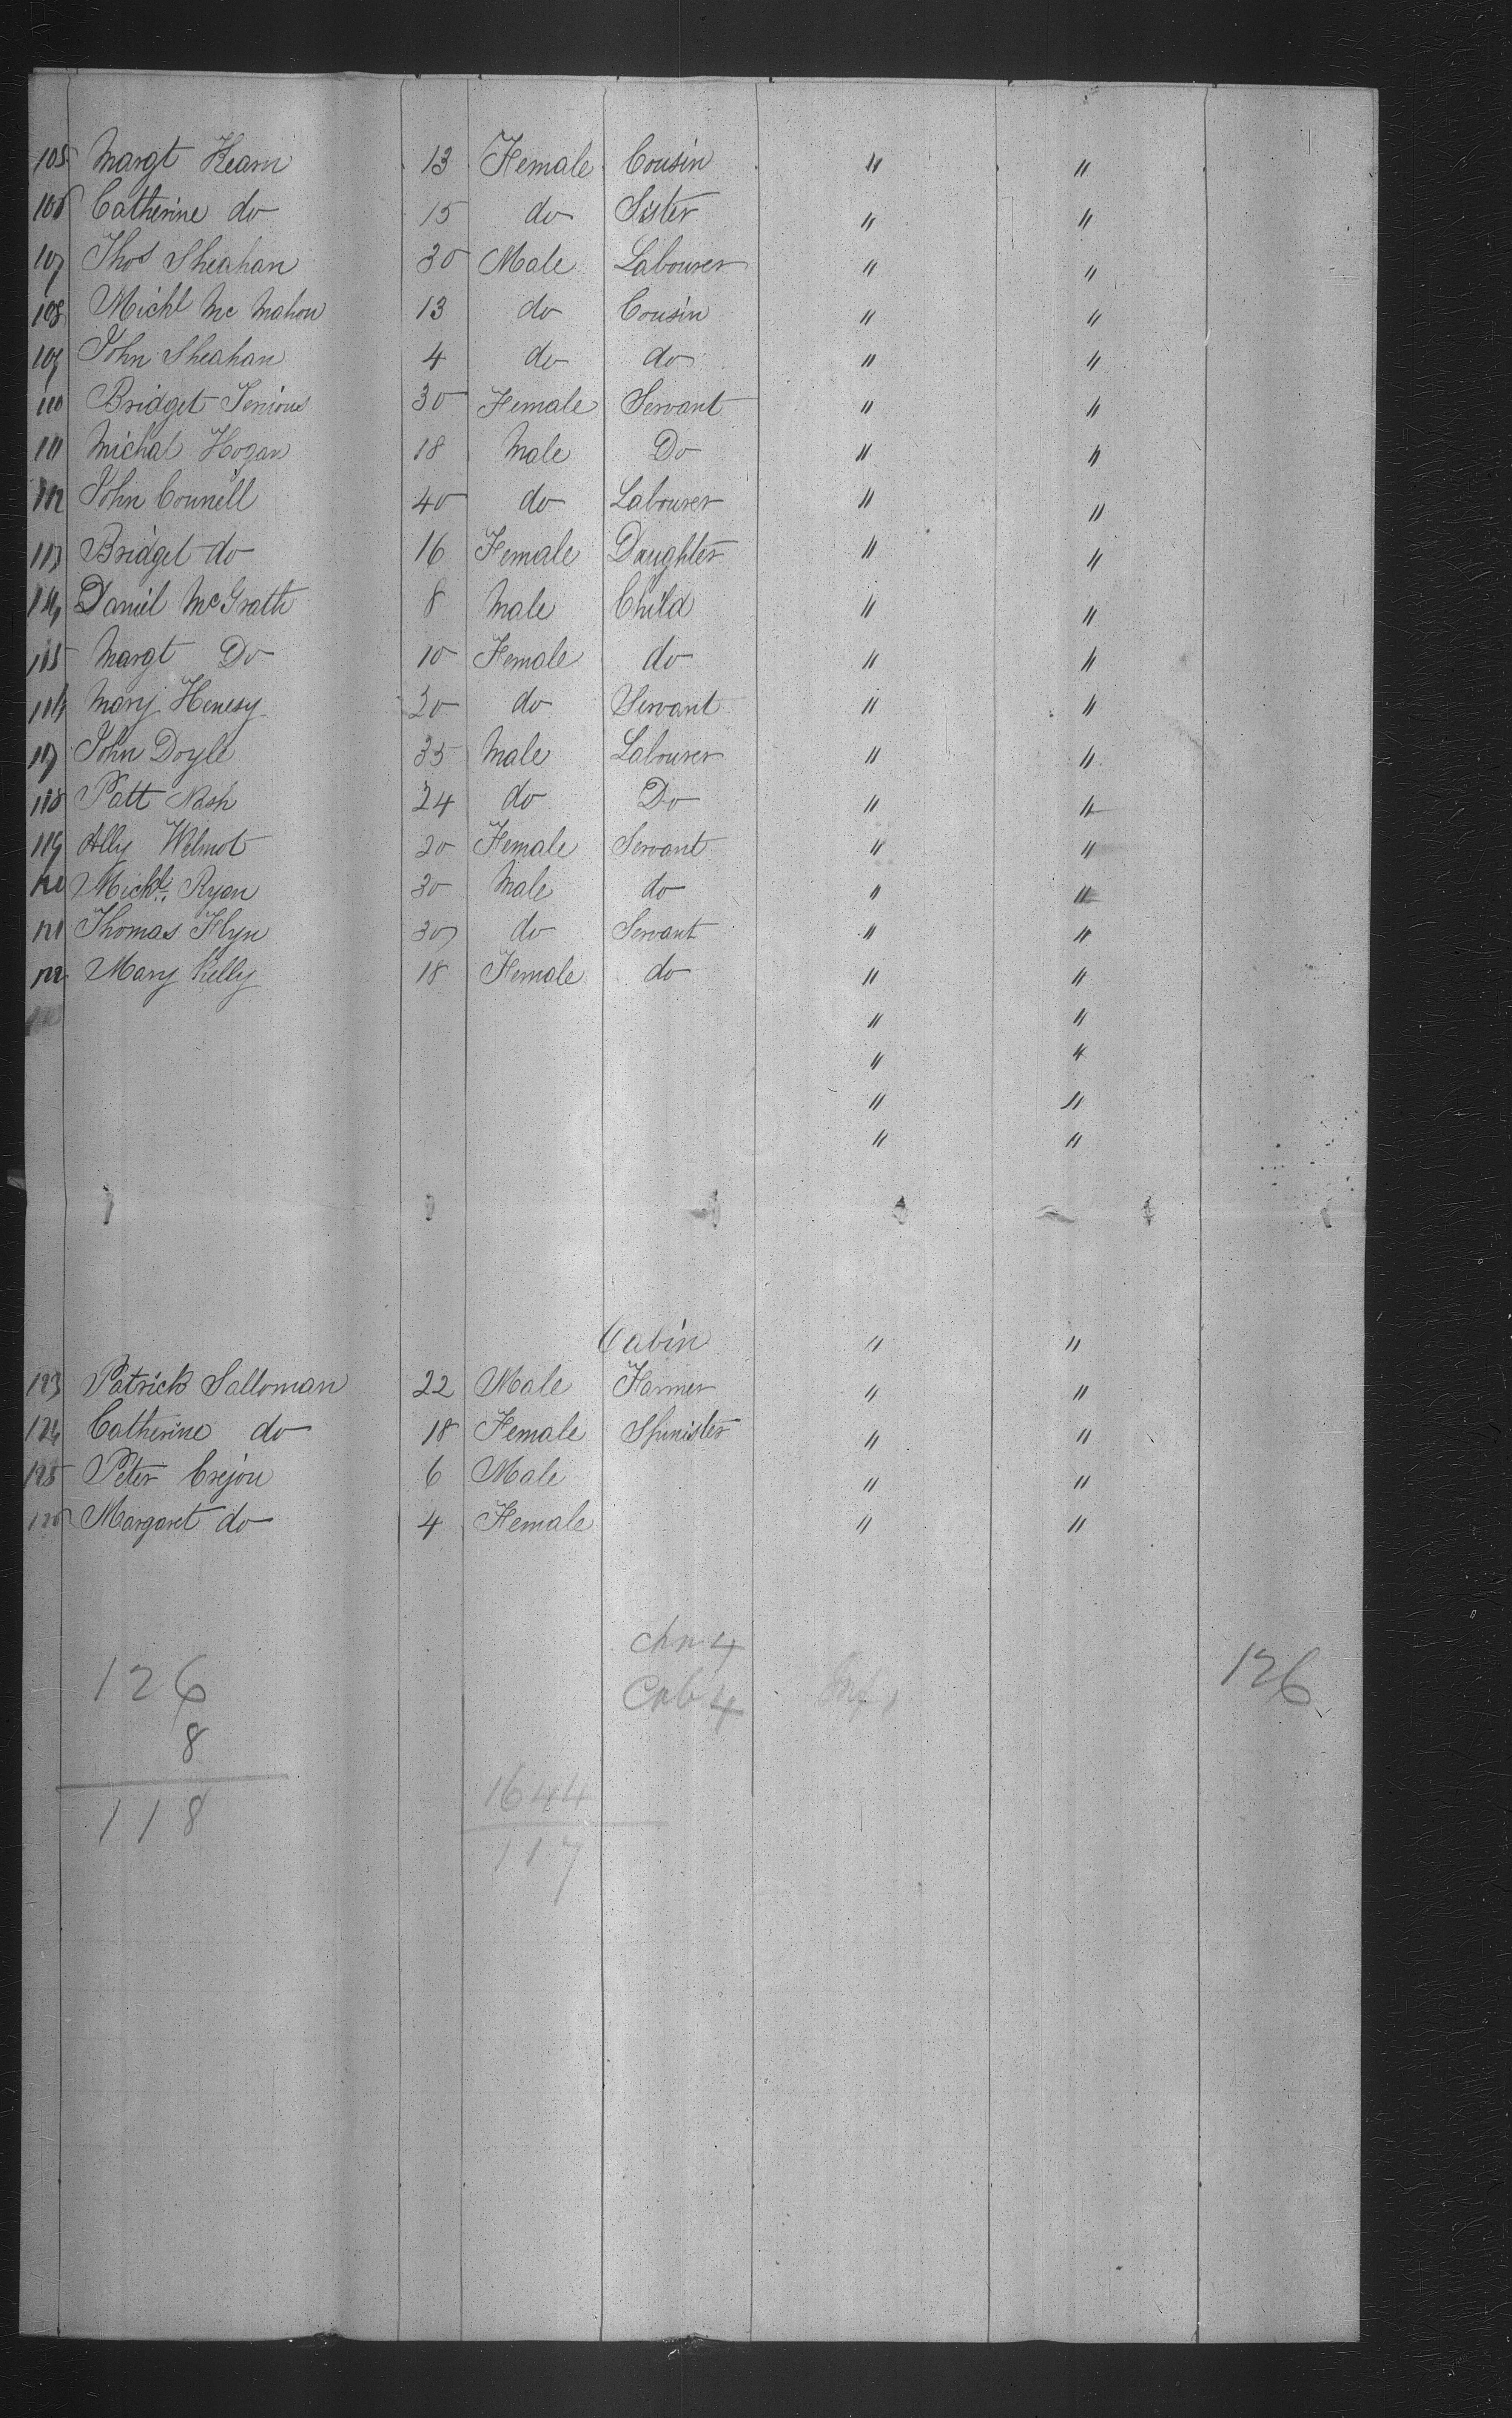 105 Margt Hearn 13 Female Cousin " "
106 Catherine do 15 do Sister " "
107 Thos Sheahan 30 Male Labourer " "
108 Michl Mc Mahon 13 do Cousin " "
109 John Sheahan 4 do do " "
110 Bridget 30 Female Servant " "
111 Michal Hogan 18 Male Do " "
112 John Connell 40 do Labourer " "
113 Bridget do 16 Female Daughter " "
114 Daniel McGrath 8 Male Child " "
115 Margt Do 10 Female do " "
116 Mary Henesy 20 do Servant " "
117 John Doyle 35 Male Labourer " "
118 Patt Nash 24 do Do " "
119 Ally Wilmot 20 Female Servant " "
120 Michl. Ryan 30 Male do " "
121 Thomas Flyn 30 do Servant " "
122 Mary Kelly 18 Female do " "
" "
" "
" "
" "
Cabin " "
123 Patrick Salloman 22 Male Farmer " "
124 Catherine do 18 Female Spinister " "
125 Peter Crejon 6 Male " "
126 Margaret do 4 Female " "
chn 4
126 Cab 4 126
8
1644
118
117